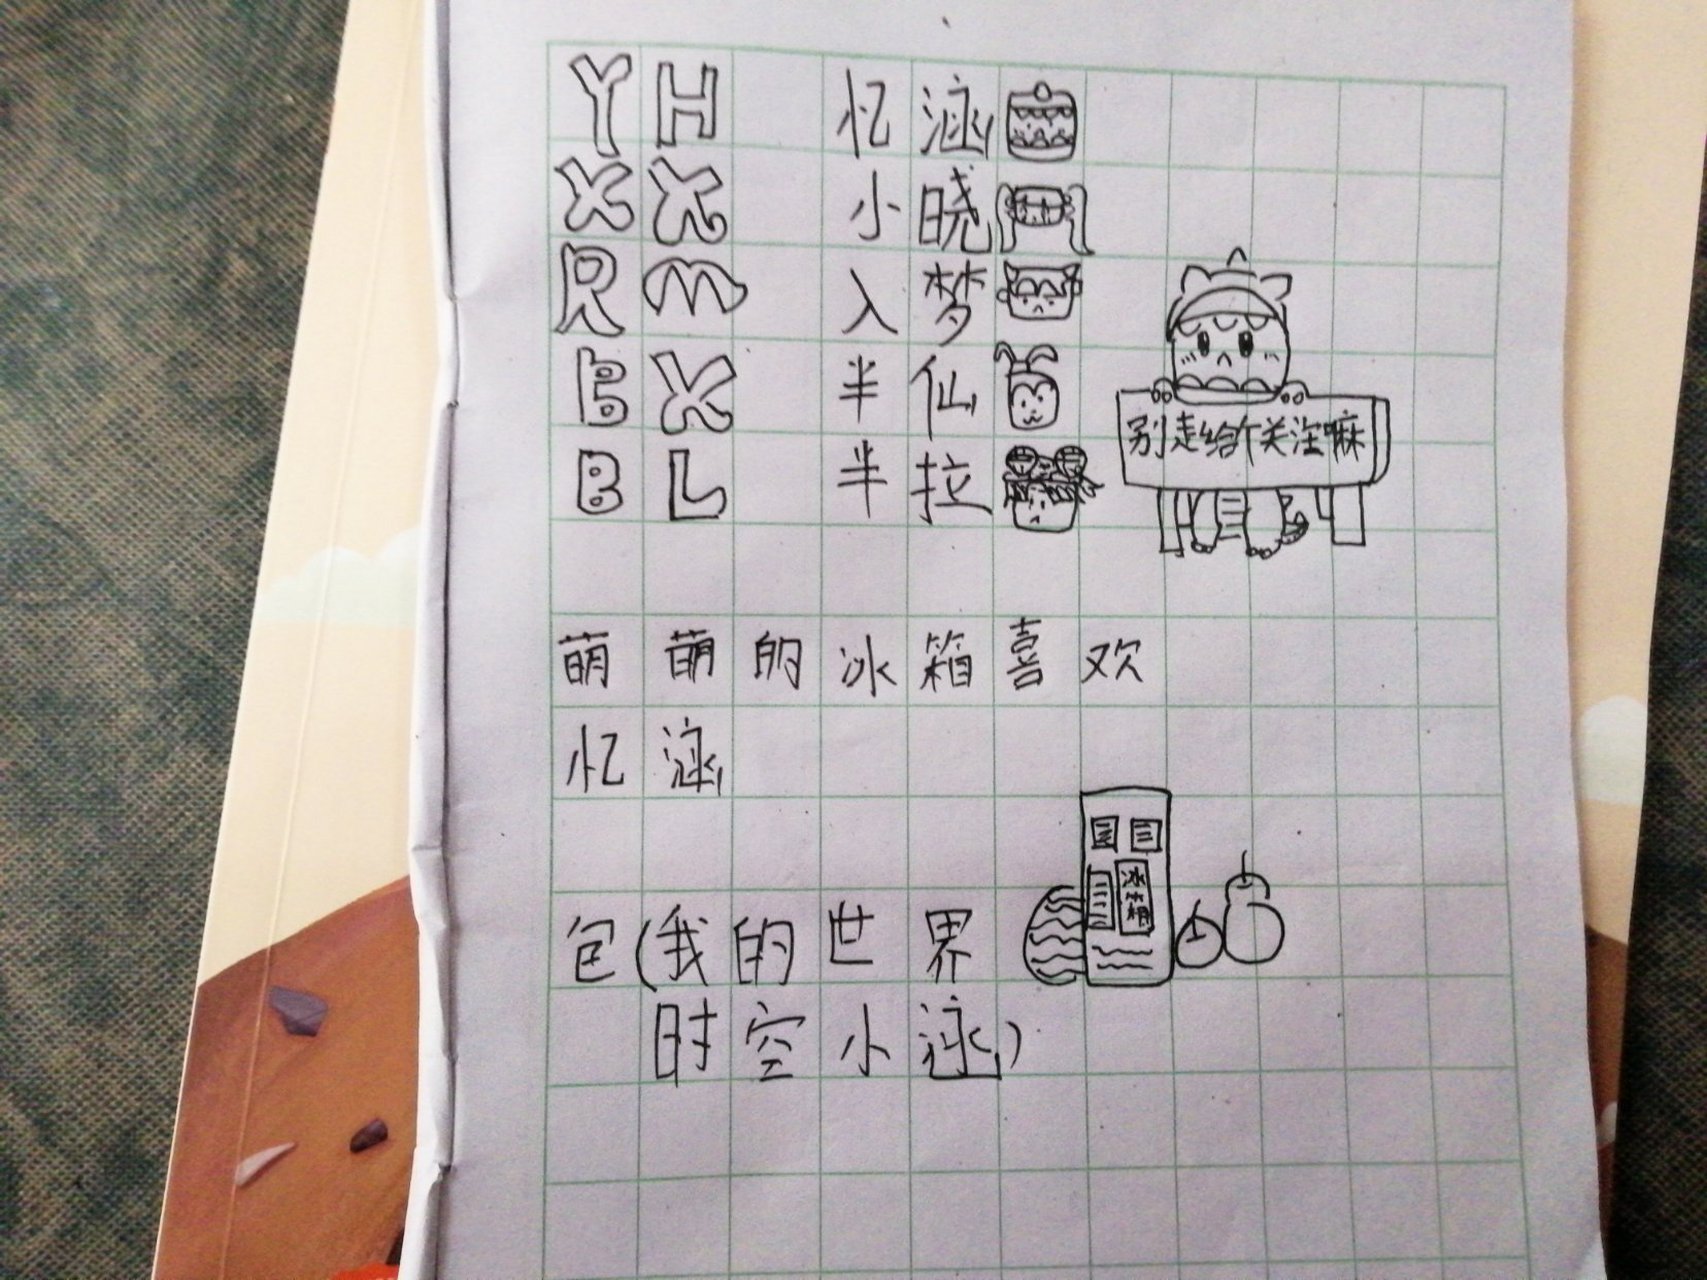 YH 忆涵
XX 小晓
RM 入梦
BX 半仙
BL 半拉
别走给个关注嘛
萌萌的冰箱喜欢
忆涵
冰箱
包(我的世界
时空小涵)